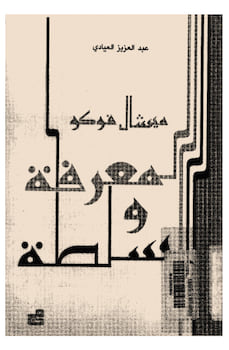 عبد العزيز العيادي
ميشال فوكو
المعرفة
و
السلطة